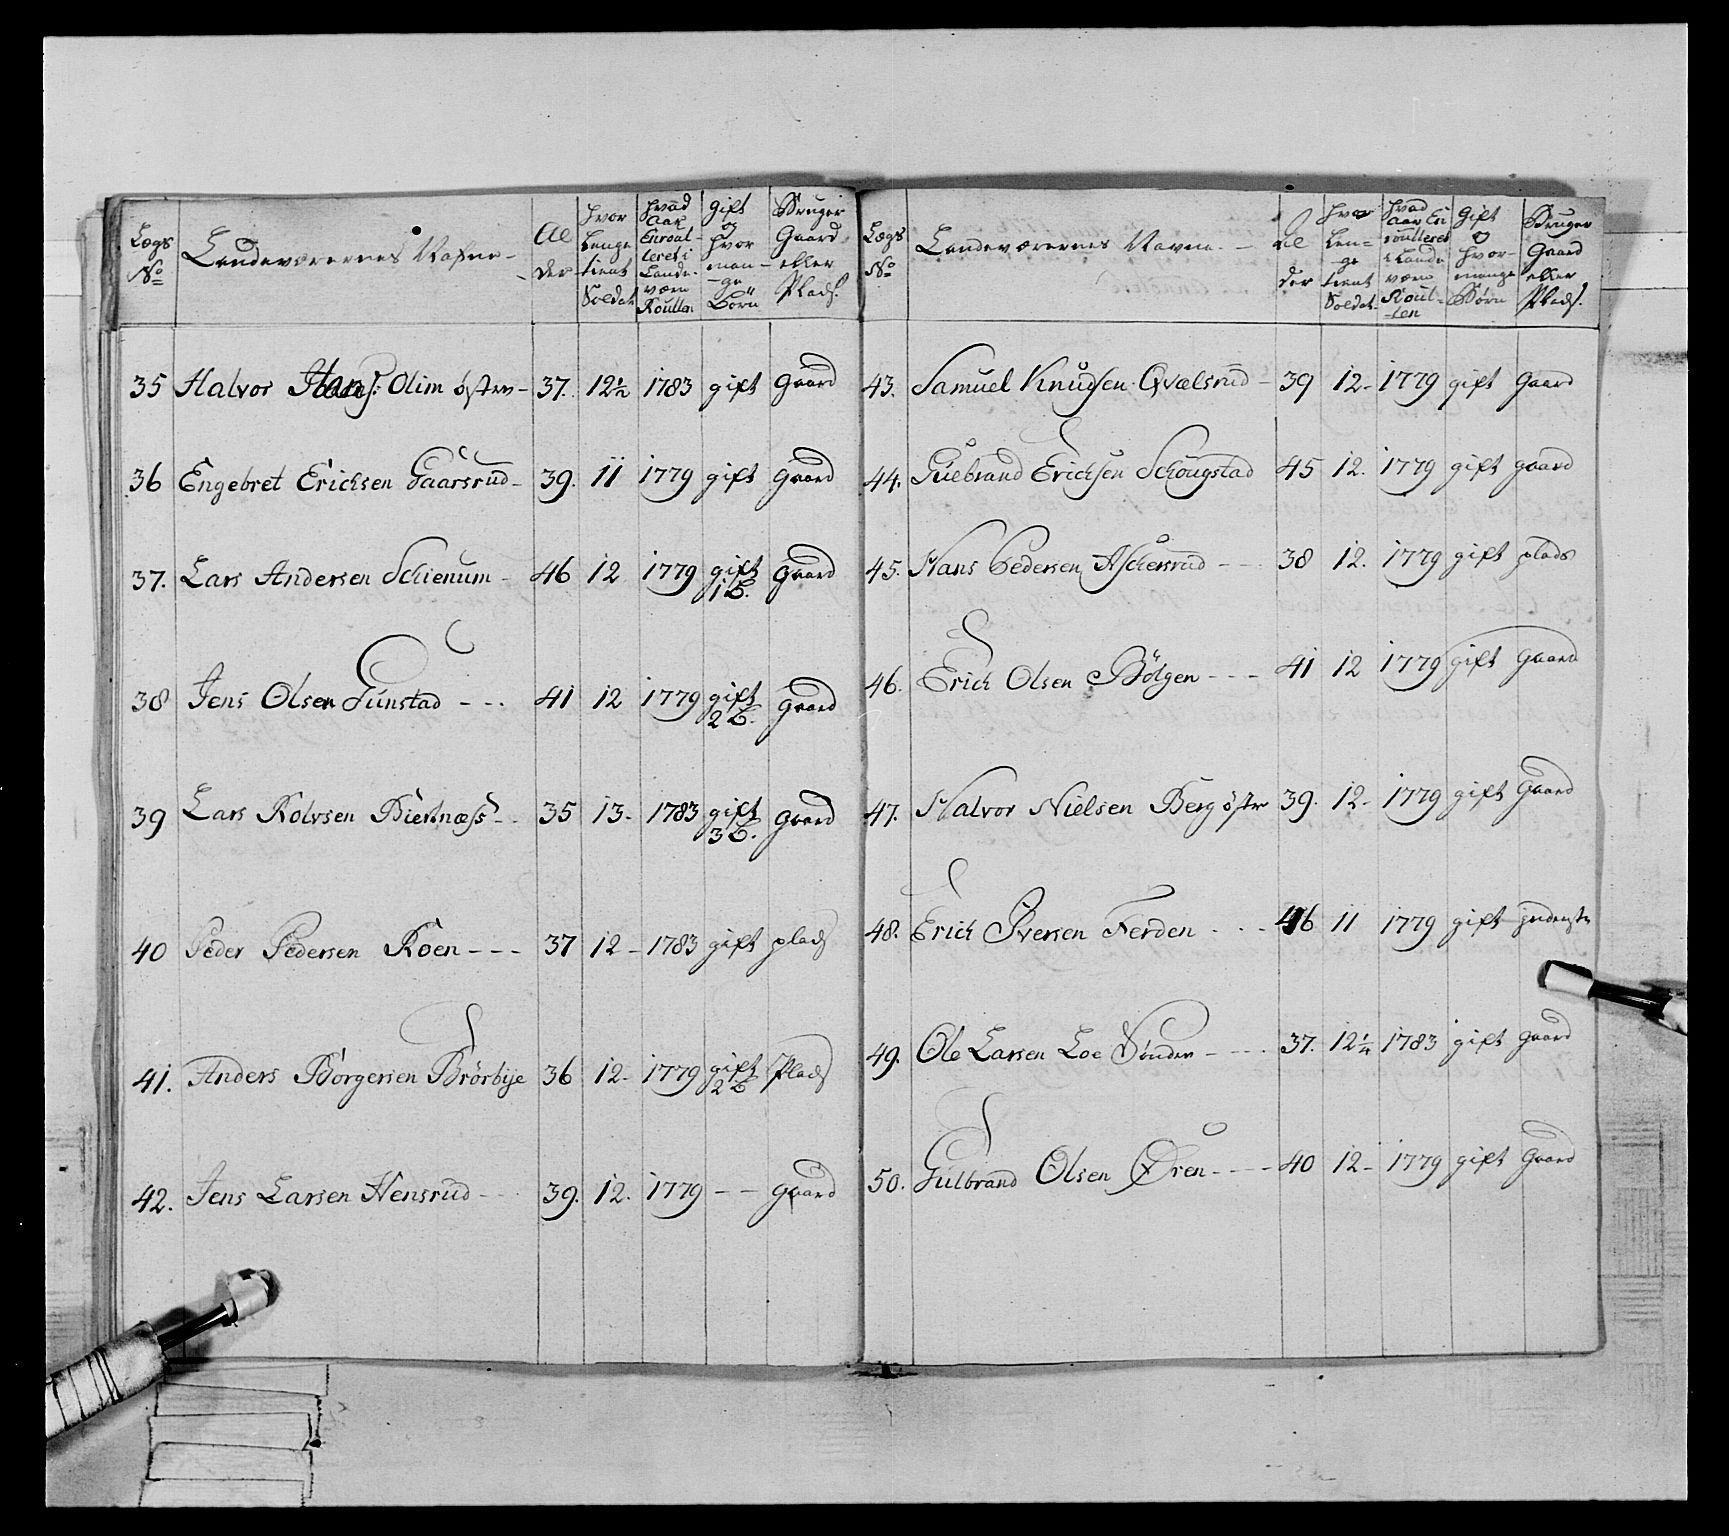 Lægs No Landeværernes Nafne Alder Hvor Lenge tient Soldat Hvad Aar Enroulleret i Landeværn Roullen gift og Hvor mange Børn Bruger Gaard eller Plads.
35 Halvor Hans: Olim østre 37. 12½ 1783 gift Gaard
36 Engebret Erichsen Gaarsrud 39. 11 1779 gift Gaard
37. Lars Andersen Schienum 46 12 1779 gift 1 B. Gaard
38 Jens Olsen Gunstad 41 12 1779 gift 2 B. Gaard
39 Lars Rolvsen Biertnæss 35 13. 1783 gift 3 B. Gaard
40 Peder Pedersen Roen 37 12 1783 gift plads
41. Anders Borgersen Brørbye 36 12. 1779 gift 2 B Plads
42. Jens Larsen Hensrud 39. 12. 1779 — — gaard
Lægs No Landeværernes Navne. Alder Hvor Lenge tient Soldat Hvad Aar Enroulleret i Landeværn Roullen Gift og Hvor mange Børn Bruger Gaard eller Plads.
43. Samuel Knudsen Qvælsrud 39 12 1779 gift Gaard
44. Gulbrand Erichsen Schougstad 45 12. 1779 gift gaard
45. Hans Pedersen Aschersrud 38 12. 1779 gift plads
46. Erich Olsen Bølgen 41 12 1779 gift gaard
47. Halvor Nielsen Berg østre 39. 12 1779 gift Gaard
48. Erich Iversen Ferden 46 11 1779 gift
49. Ole Larsen Loe Sønder 37. 12¼ 1783 gift gaard
50. Gulbrand Olsen Øren 40 12 1779 gift Gaard